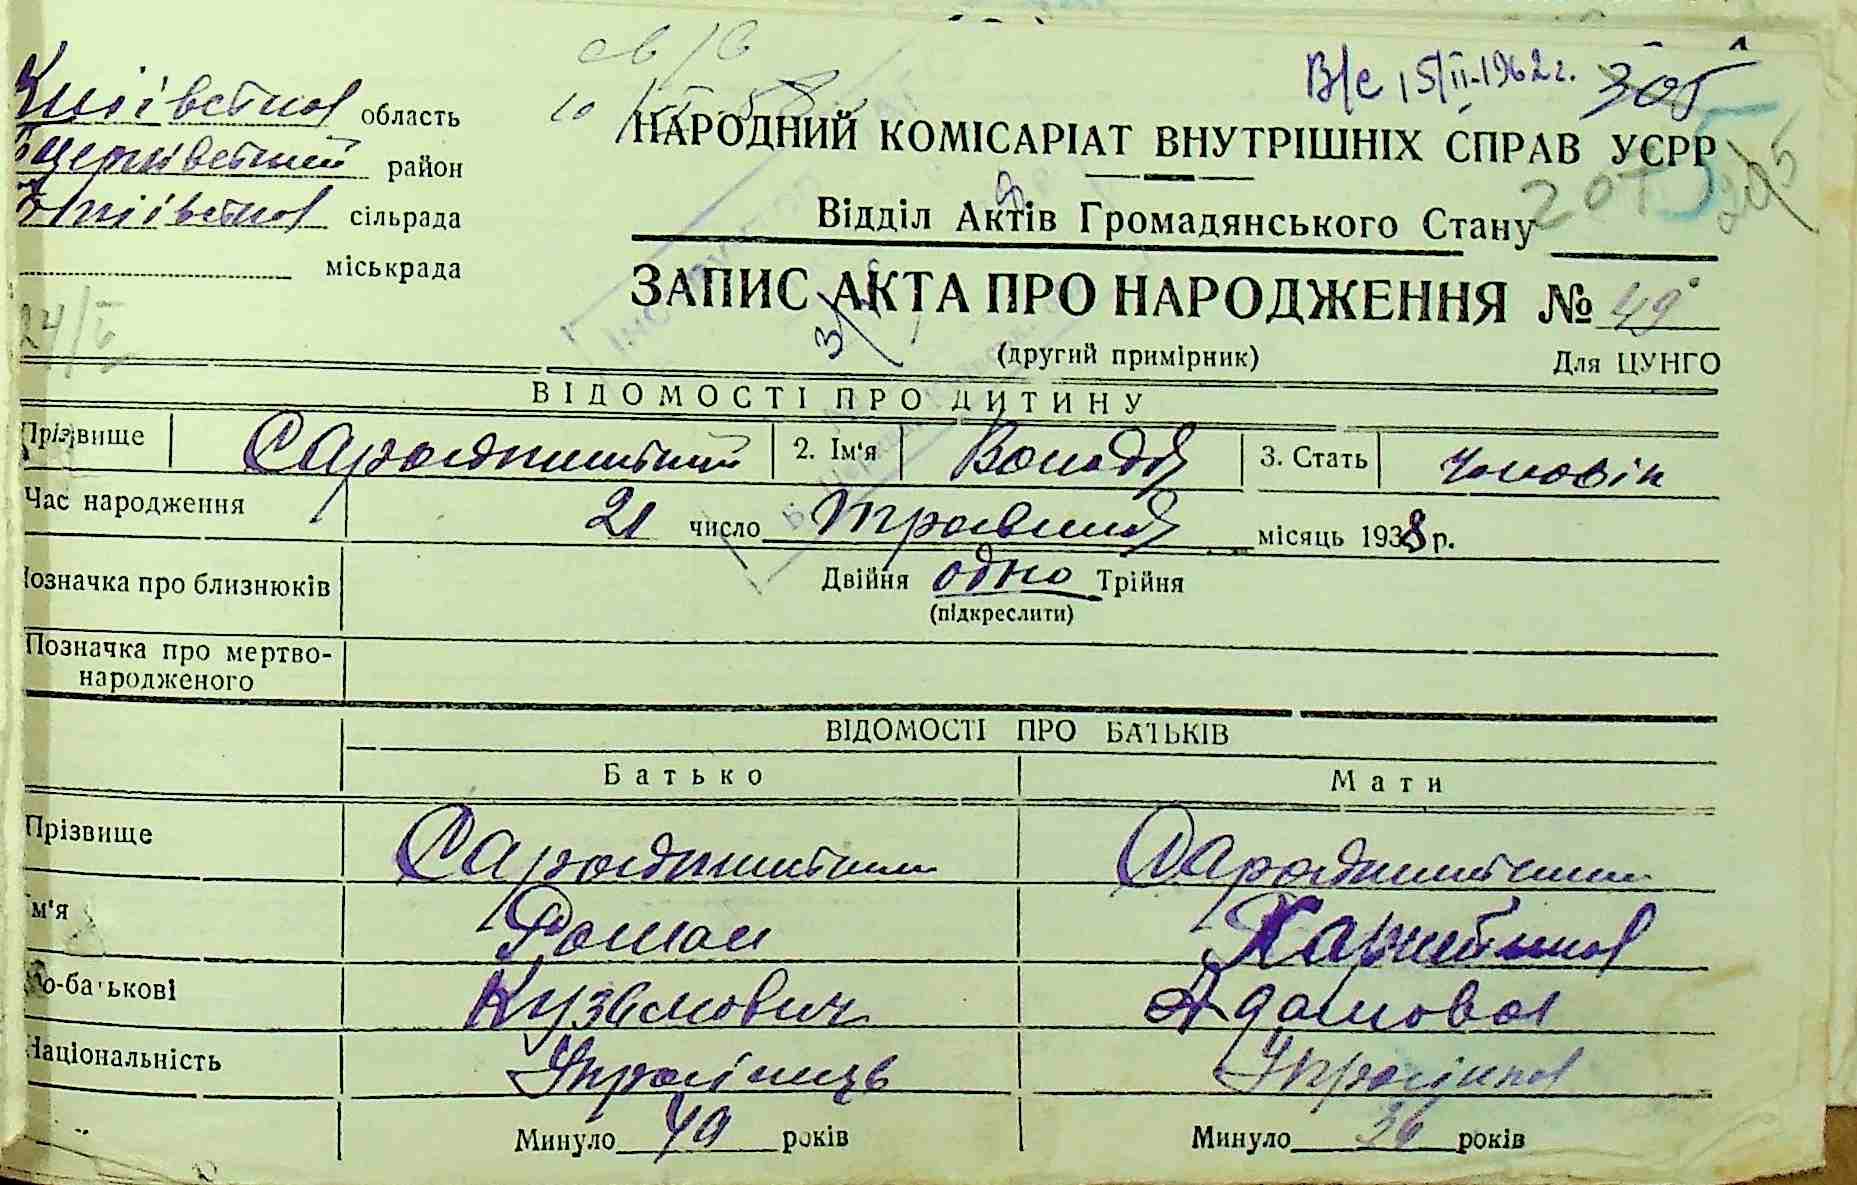 В/с 15/II-1962 г. 305
Київська область
Б Церківський район
сільрада
міськрада
НАРОДНИЙ КОМІСАРІАТ ВНУТРІШНІХ СПРАВ УСРР
Відділ Актів Громадянського Стану
ЗАПИС АКТА ПРО НАРОДЖЕННЯ № 49
(другий примірник) Для ЦУНГО
ВІДОМОСТІ ПРО ДИТИНУ
Прізвище 2. Ім'я Володя 3. Стать чоловік
Час народження 21 число травня місяць 1938 р.
Позначка про близнюків Двійня одно Трійня
(підкреслити)
Позначка про мертво-
народженого
ВІДОМОСТІ ПРО БАТЬКІВ
Батько Мати
Прізвище
Ім'я Роман Харитина
По-батькові Кузьмович Адамова
Національність Українець Українка
Минуло 40 років Минуло 36 років